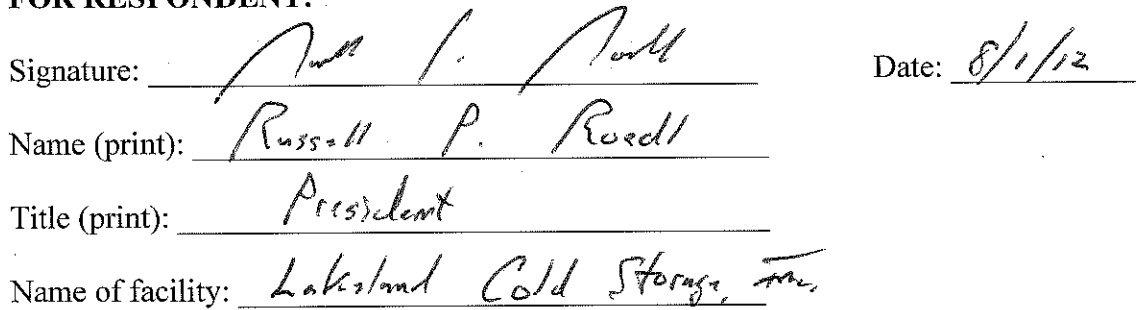 FOR RESPONDENT:
Signature: Date: 8/1/12
Name (print): Russell P. Roedl
Title (print): President
Name of facility: Lakeland Cold Storage, Inc.